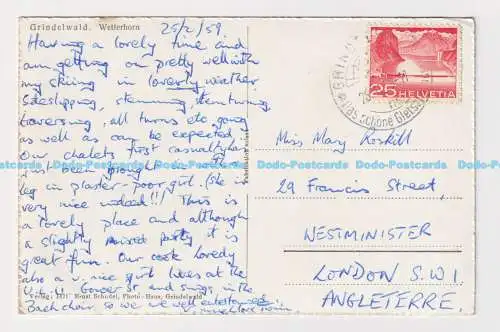 Grindelwald. Wetterhorn
25/2/59
Having a lovely time and
am getting on pretty well with
my skiing in loverly weather.
Sideslipping, stemming, stem turning,
traversing, all turns etc. going
as well as can be expected.
Our chalets first casualty
has been brought in
leg in plaster - poor girl. (She is
very nice indeed!!) This is
a lovely place and although
a slightly mixed party it is
great fun. Our cook Lovedy
also a v. nice girl lives at the
Gower St and sings in the
Bach choir so we're well entertained.
Verlag 3121 Ernst Schudel, Photo-Haus, Grindelwald
HELVETIA
25
GRINDELWALD
Das schöne Gletscherdorf
Miss Mary
29 Francis Street,
WESTMINISTER
LONDON S.W.1
ANGLETERRE.
Dodo-Postcards Dodo-Postcards Dodo-Postcards Dodo-Postcards Dodo-Postcards Dodo-Postcards